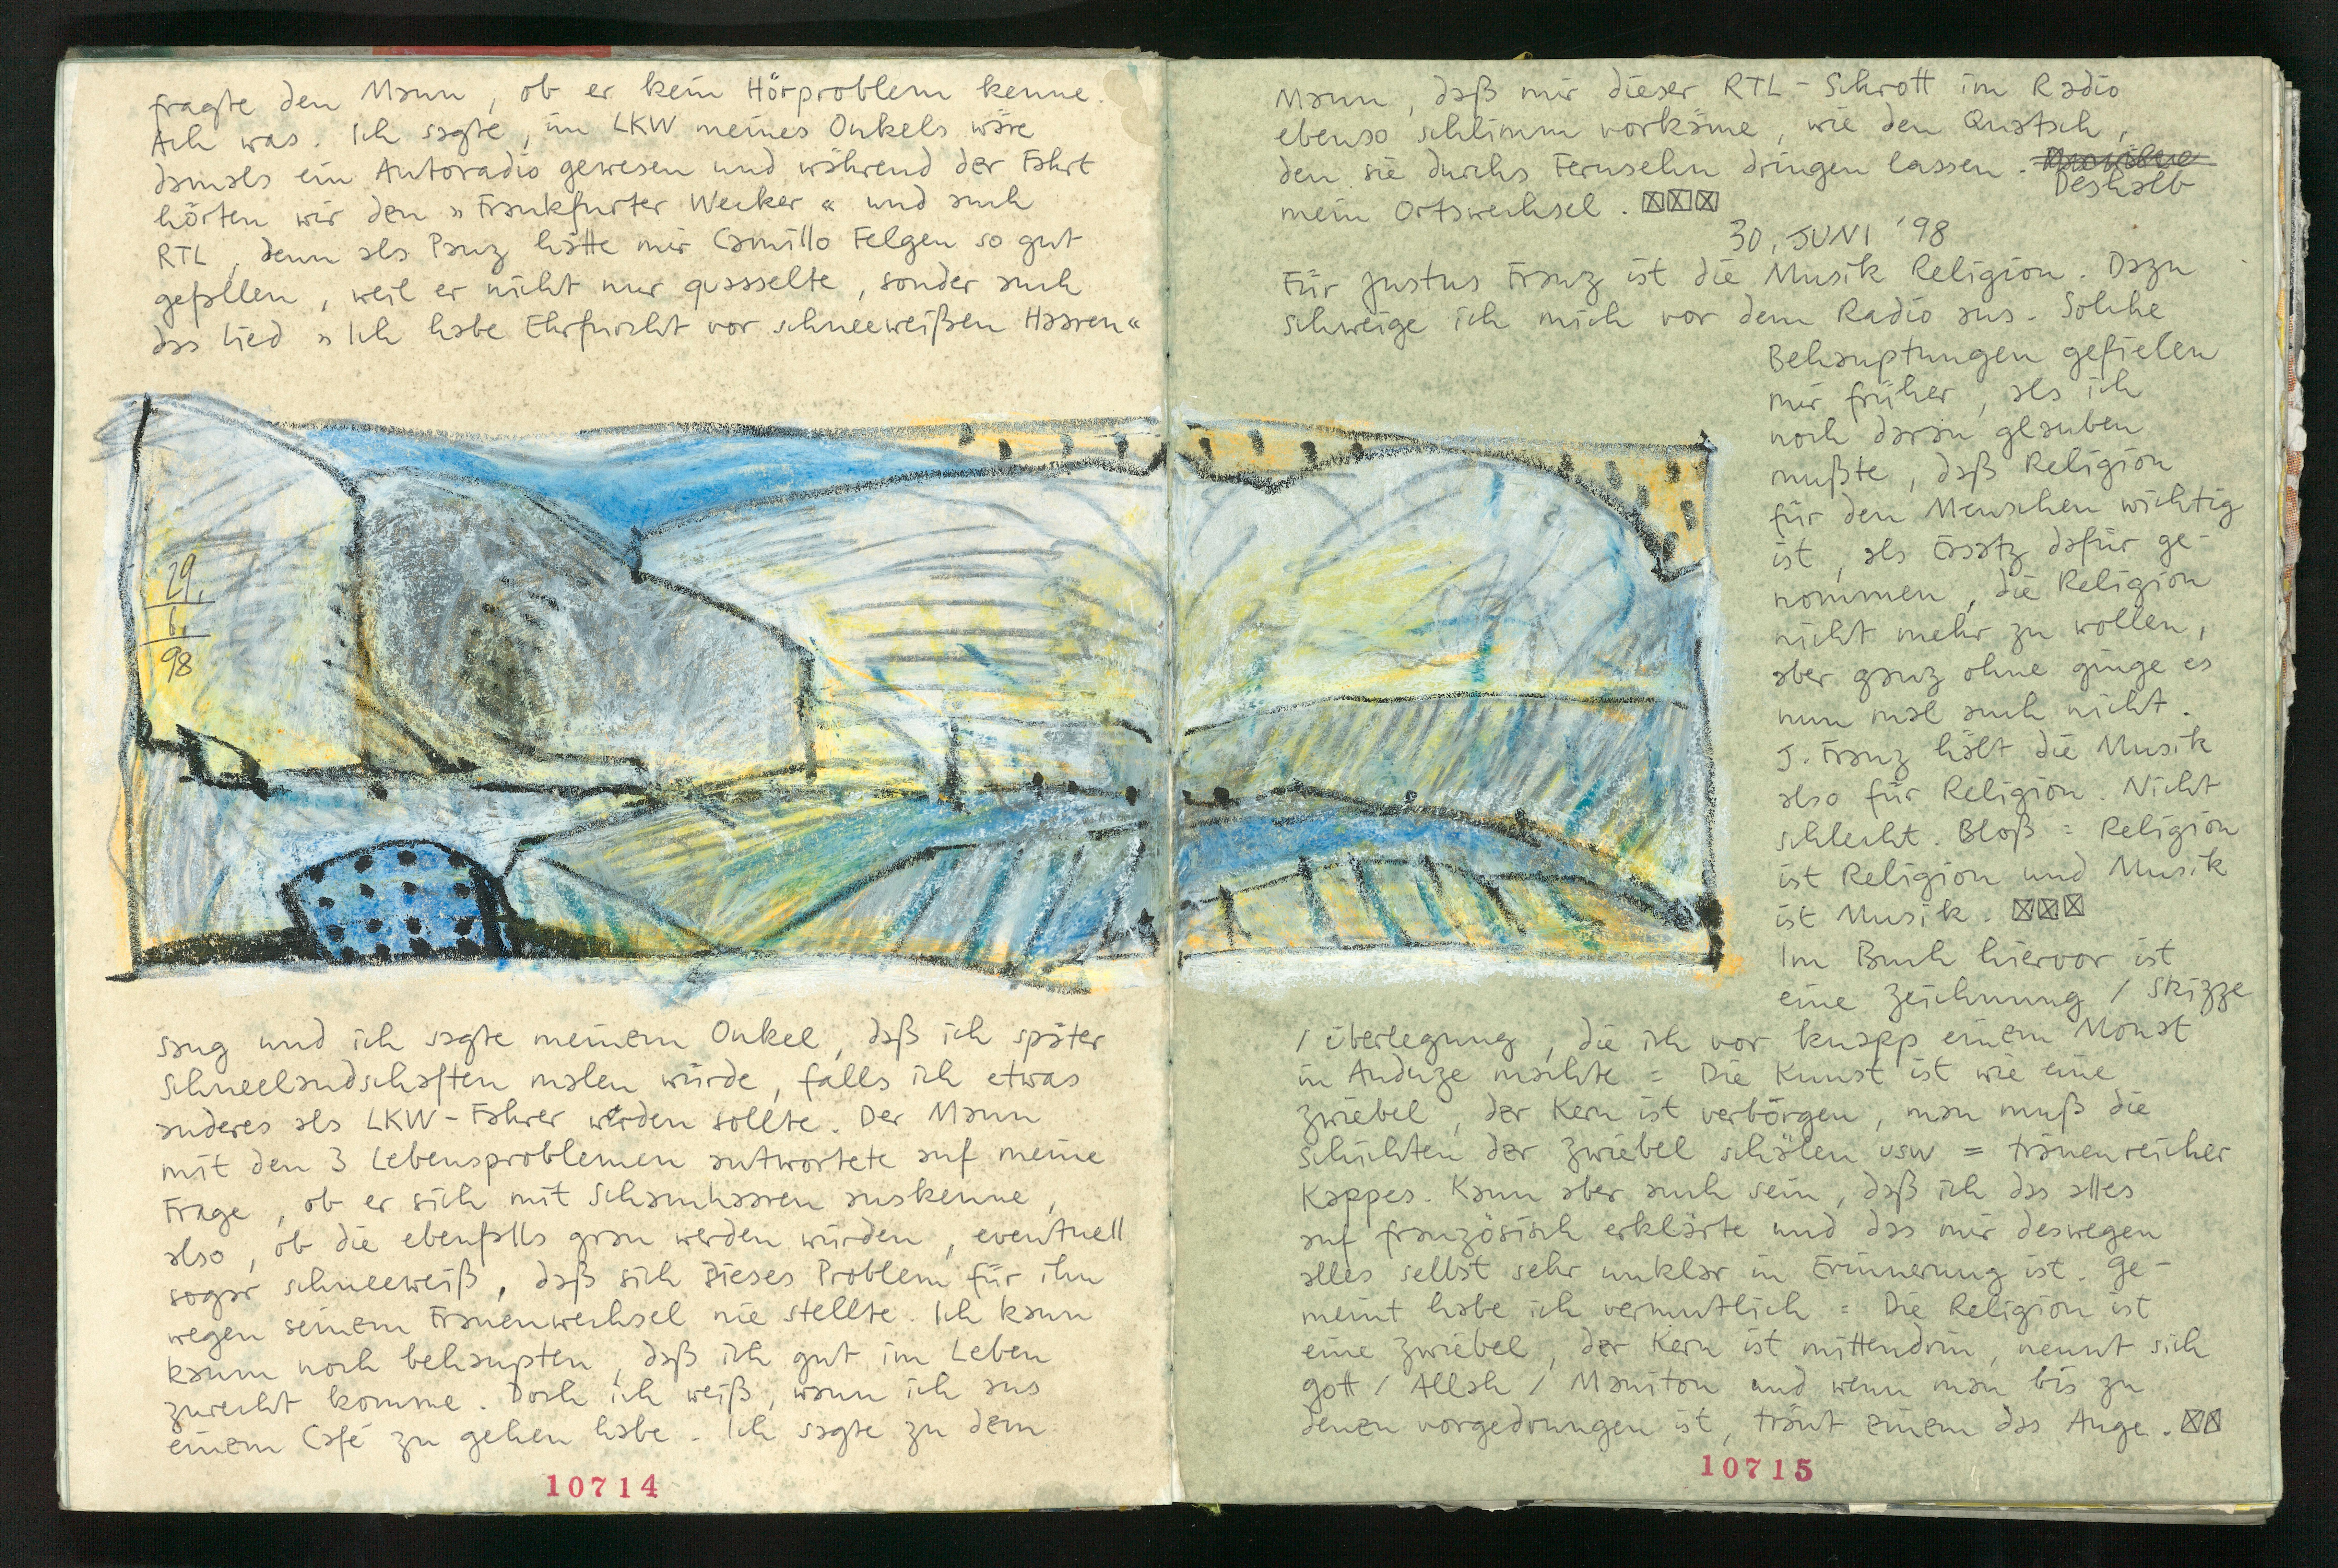 fragte den Mann, ob er kein Hörproblem kenne.
Ach was. Ich sagte, im LKW meines Onkels wäre
damals ein Autoradio gewesen und während der Fahrt
hörten wir den »Frankfurter Wecker« und auch
RTL, denn als Panz hätte mir Camillo Felgen so gut
gefallen, weil er nicht nur quasselte, sonder auch
das Lied »Ich habe Ehrfurcht vor schneeweißen Haaren«
29.
6.
98
sang und ich sagte meinem Onkel, daß ich später
Schneelandschaften malen würde, falls ich etwas
anderes als LKW-Fahrer werden sollte. Der Mann
mit den 3 Lebensproblemen antwortete auf meine
Frage, ob er sich mit Schamhaaren auskenne,
also, ob die ebenfalls grau werden würden, eventuell
sogar schneeweiß, daß sich dieses Problem für ihn
wegen seinem Frauenwechsel nie stellte. Ich kann
kaum noch behaupten, daß ich gut im Leben
zurecht komme. Doch ich weiß, wann ich aus
einem Café zu gehen habe. Ich sagte zu dem
10714
Mann, daß mir dieser RTL-Schrott im Radio
ebenso schlimm vorkäme, wie den Quatsch,
den sie durchs Fernsehn dringen lassen.
Deshalb
mein Ortswechsel. ☒☒☒
30. JUNI '98
Für Justus Franz ist die Musik Religion. Dazu
schweige ich mich vor dem Radio aus. Solche
Behauptungen gefielen
mir früher, als ich
noch daran glauben
mußte, daß Religion
für den Menschen wichtig
ist, als Ersatz dafür ge-
nommen, die Religion
nicht mehr zu wollen,
aber ganz ohne ginge es
nun mal auch nicht.
J. Franz hält die Musik
also für Religion. Nicht
schlecht. Bloß: Religion
ist Religion und Musik
ist Musik. ☒☒☒
Im Buch hiervor ist
eine Zeichnung / Skizze
/ Überlegung, die ich vor knapp einem Monat
in Anduze machte = Die Kunst ist wie eine
Zwiebel, der Kern ist verborgen, man muß die
Schichten der Zwiebel schälen usw = tränenreicher
Kappes. Kann aber auch sein, daß ich das alles
auf französisch erklärte und das mir deswegen
alles selbst sehr unklar in Erinnerung ist. Ge-
meint habe ich vermutlich = Die Religion ist
eine Zwiebel, der Kern ist mittendrin, nennt sich
Gott / Allah / Manitou und wenn man bis zu
denen vorgedrungen ist, tränt einem das Auge. ☒☒
10715